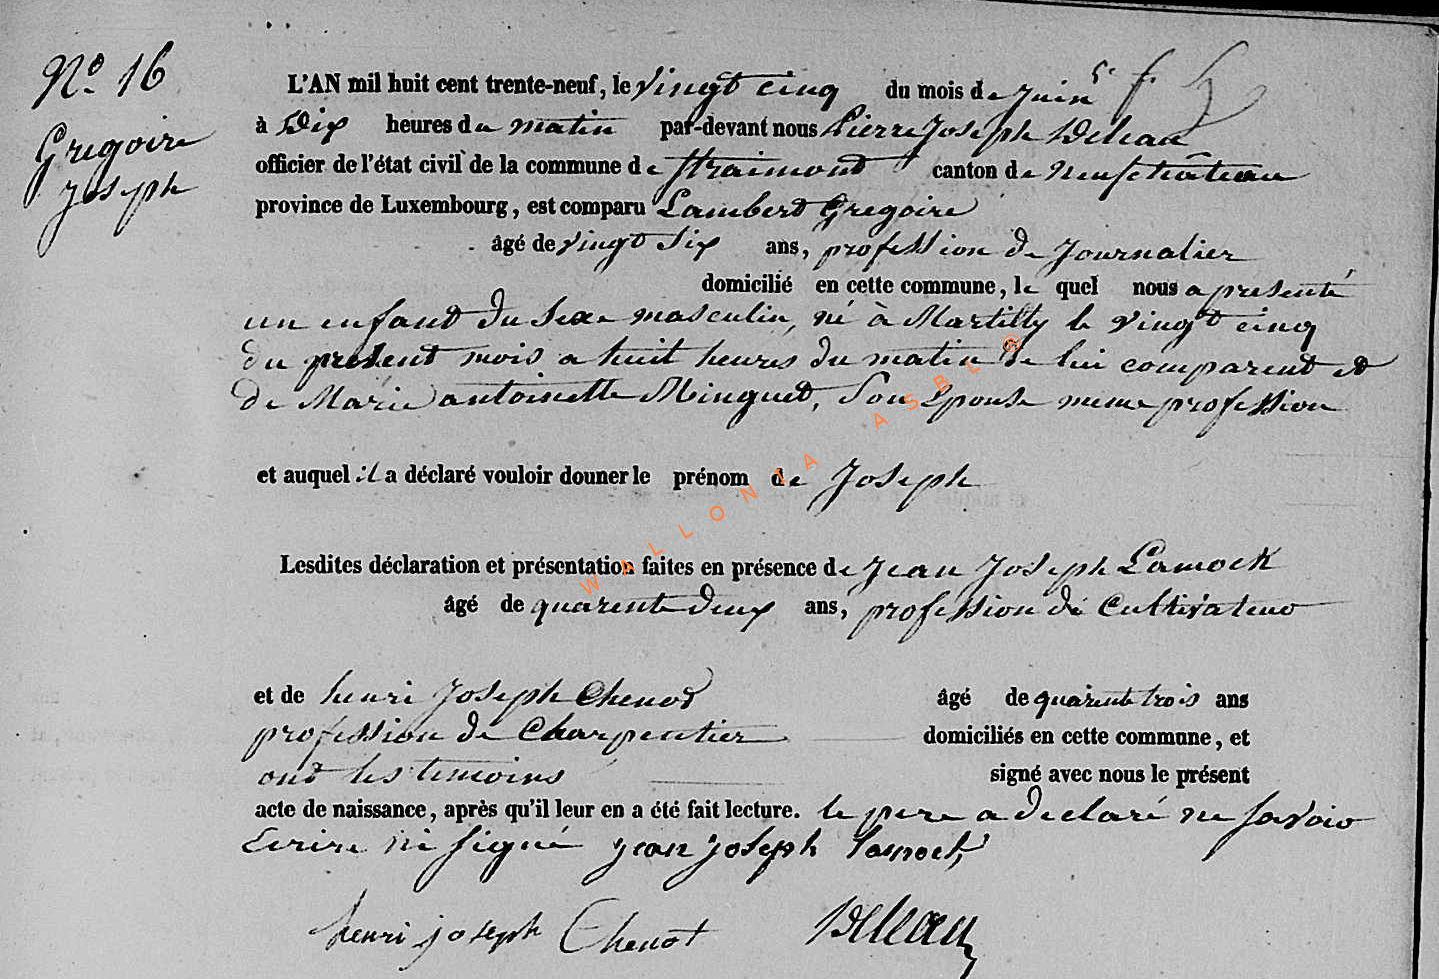 N° 16
Gregoire
Joseph
L'AN mil huit cent trente-neuf, le vingt cinq du mois de Juin
à Dix heures du matin par-devant nous Pierre Joseph Deleau
officier de l'état civil de la commune de Straimont canton de Neufchâteau
province de Luxembourg, est comparu Lambert Gregoire
âgé de vingt six ans, profession de Journalier
domicilié en cette commune, le quel nous a presenté
un enfant du sexe masculin, né à Martilly le vingt cinq
du present mois a huit heures du matin de lui comparent et
de Marie antoinette Minguet, Son Epouse meme profession
et auquel il a déclaré vouloir donner le prénom de Joseph
Lesdites déclaration et présentation faites en présence de Jean Joseph Lamock
âgé de quarente deux ans, profession de Cultivateur
et de henri Joseph Chenot âgé de quarente trois ans
profession de Charpentier domiciliés en cette commune, et
ont les temoins signé avec nous le présent
acte de naissance, après qu'il leur en a été fait lecture. le pere a declaré ne savoir
Ecrire ni signé jean joseph lamock
henri joseph Chenot Deleau
WALLONIA ASBL ®